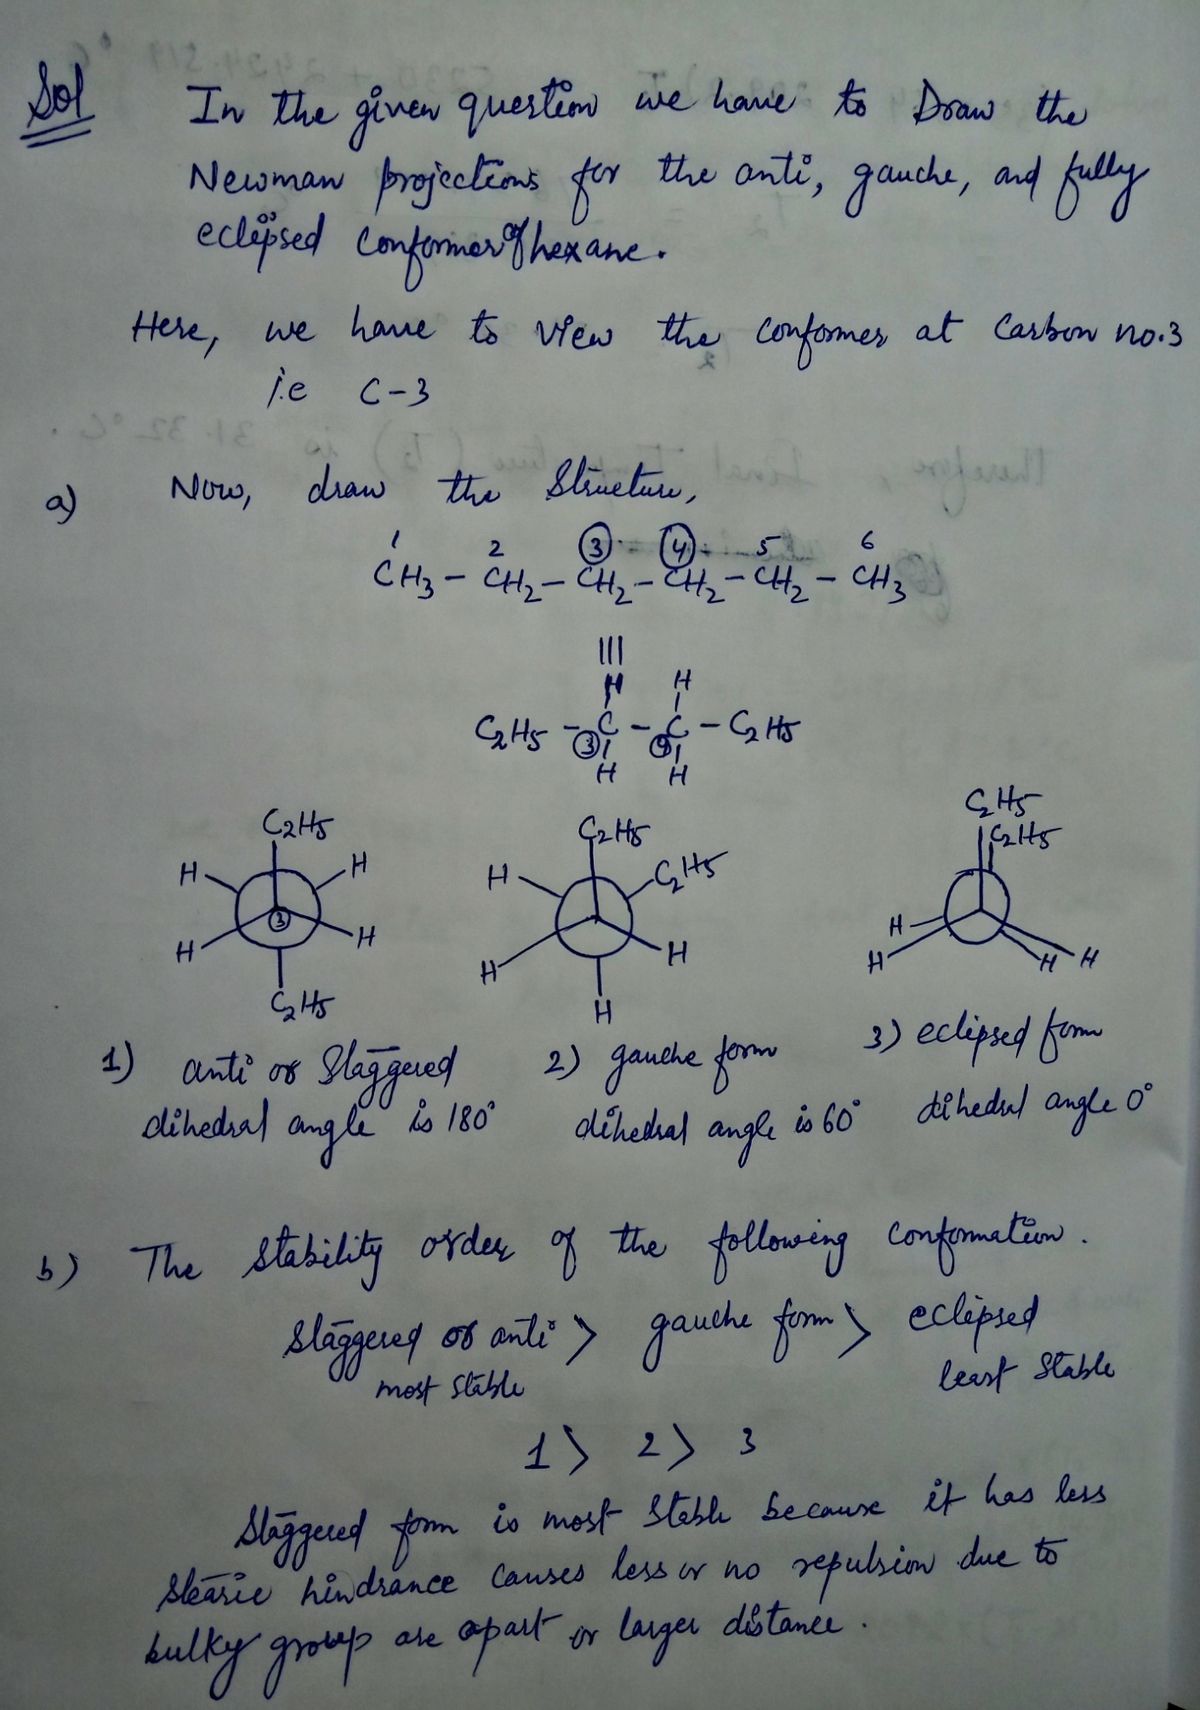 Sol In the given question we have to Draw the
Newman projections for the anti, gauche, and fully
eclipsed conformer of hexane.
Here, we have to view the conformer at Carbon no.3
i.e C-3
a) Now, draw the Structure,
1 2 3 4 5 6
CH3 - CH2 - CH2 - CH2 - CH2 - CH3
H H
C2H5 - C - C - C2H5
3 4
H H
C2H5 C2H5 C2H5
C2H5
H H H C2H5
3
H H H H H
H H H
C2H5 H
1) anti or Staggered 2) gauche form 3) eclipsed form
dihedral angle is 180° dihedral angle is 60° dihedral angle 0°
b) The Stability order of the following conformation.
Staggered or anti > gauche form > eclipsed
most stable least Stable
1 > 2 > 3
Staggered form is most Stable because it has less
stearic hindrance causes less or no repulsion due to
bulky group are apart or larger distance.